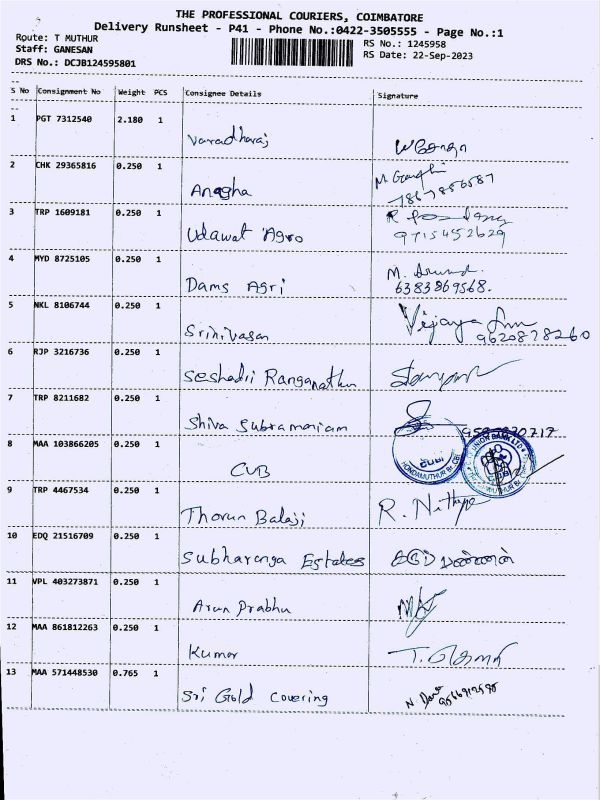 THE PROFESSIONAL COURIERS, COIMBATORE
Delivery Runsheet - P41 - Phone No.:0422-3505555 - Page No.:1
Route: T MUTHUR
Staff: GANESAN
DRS No.: DCJB124595801
RS No.: 1245958
RS Date: 22-Sep-2023
S No Consignment No Weight PCS Consignee Details Signature
1 PGT 7312540 2.180 1
Varadharaj
2 CHK 29365816 0.250 1
Anagha
3 TRP 1609181 0.250 1
Udawat Agro
9715452629
4 MYD 8725105 0.250 1
Dams Agri
6383869568.
5 NKL 8106744 0.250 1
Srinivasan Vijaya
9620878260
6 RJP 3216736 0.250 1
Seshadri Ranganathan
7 TRP 8211682 0.250 1
Shiva Subramaniam
8 MAA 103866205 0.250 1
CUB
9 TRP 4467534 0.250 1
Tharun Balaji R. Nithya
10 EDQ 21516709 0.250 1
Subharanga Estates
11 VPL 403273871 0.250 1
Arun Prabhu
12 MAA 861812263 0.250 1
Kumar
13 MAA 571448530 0.765 1
Sri Gold covering